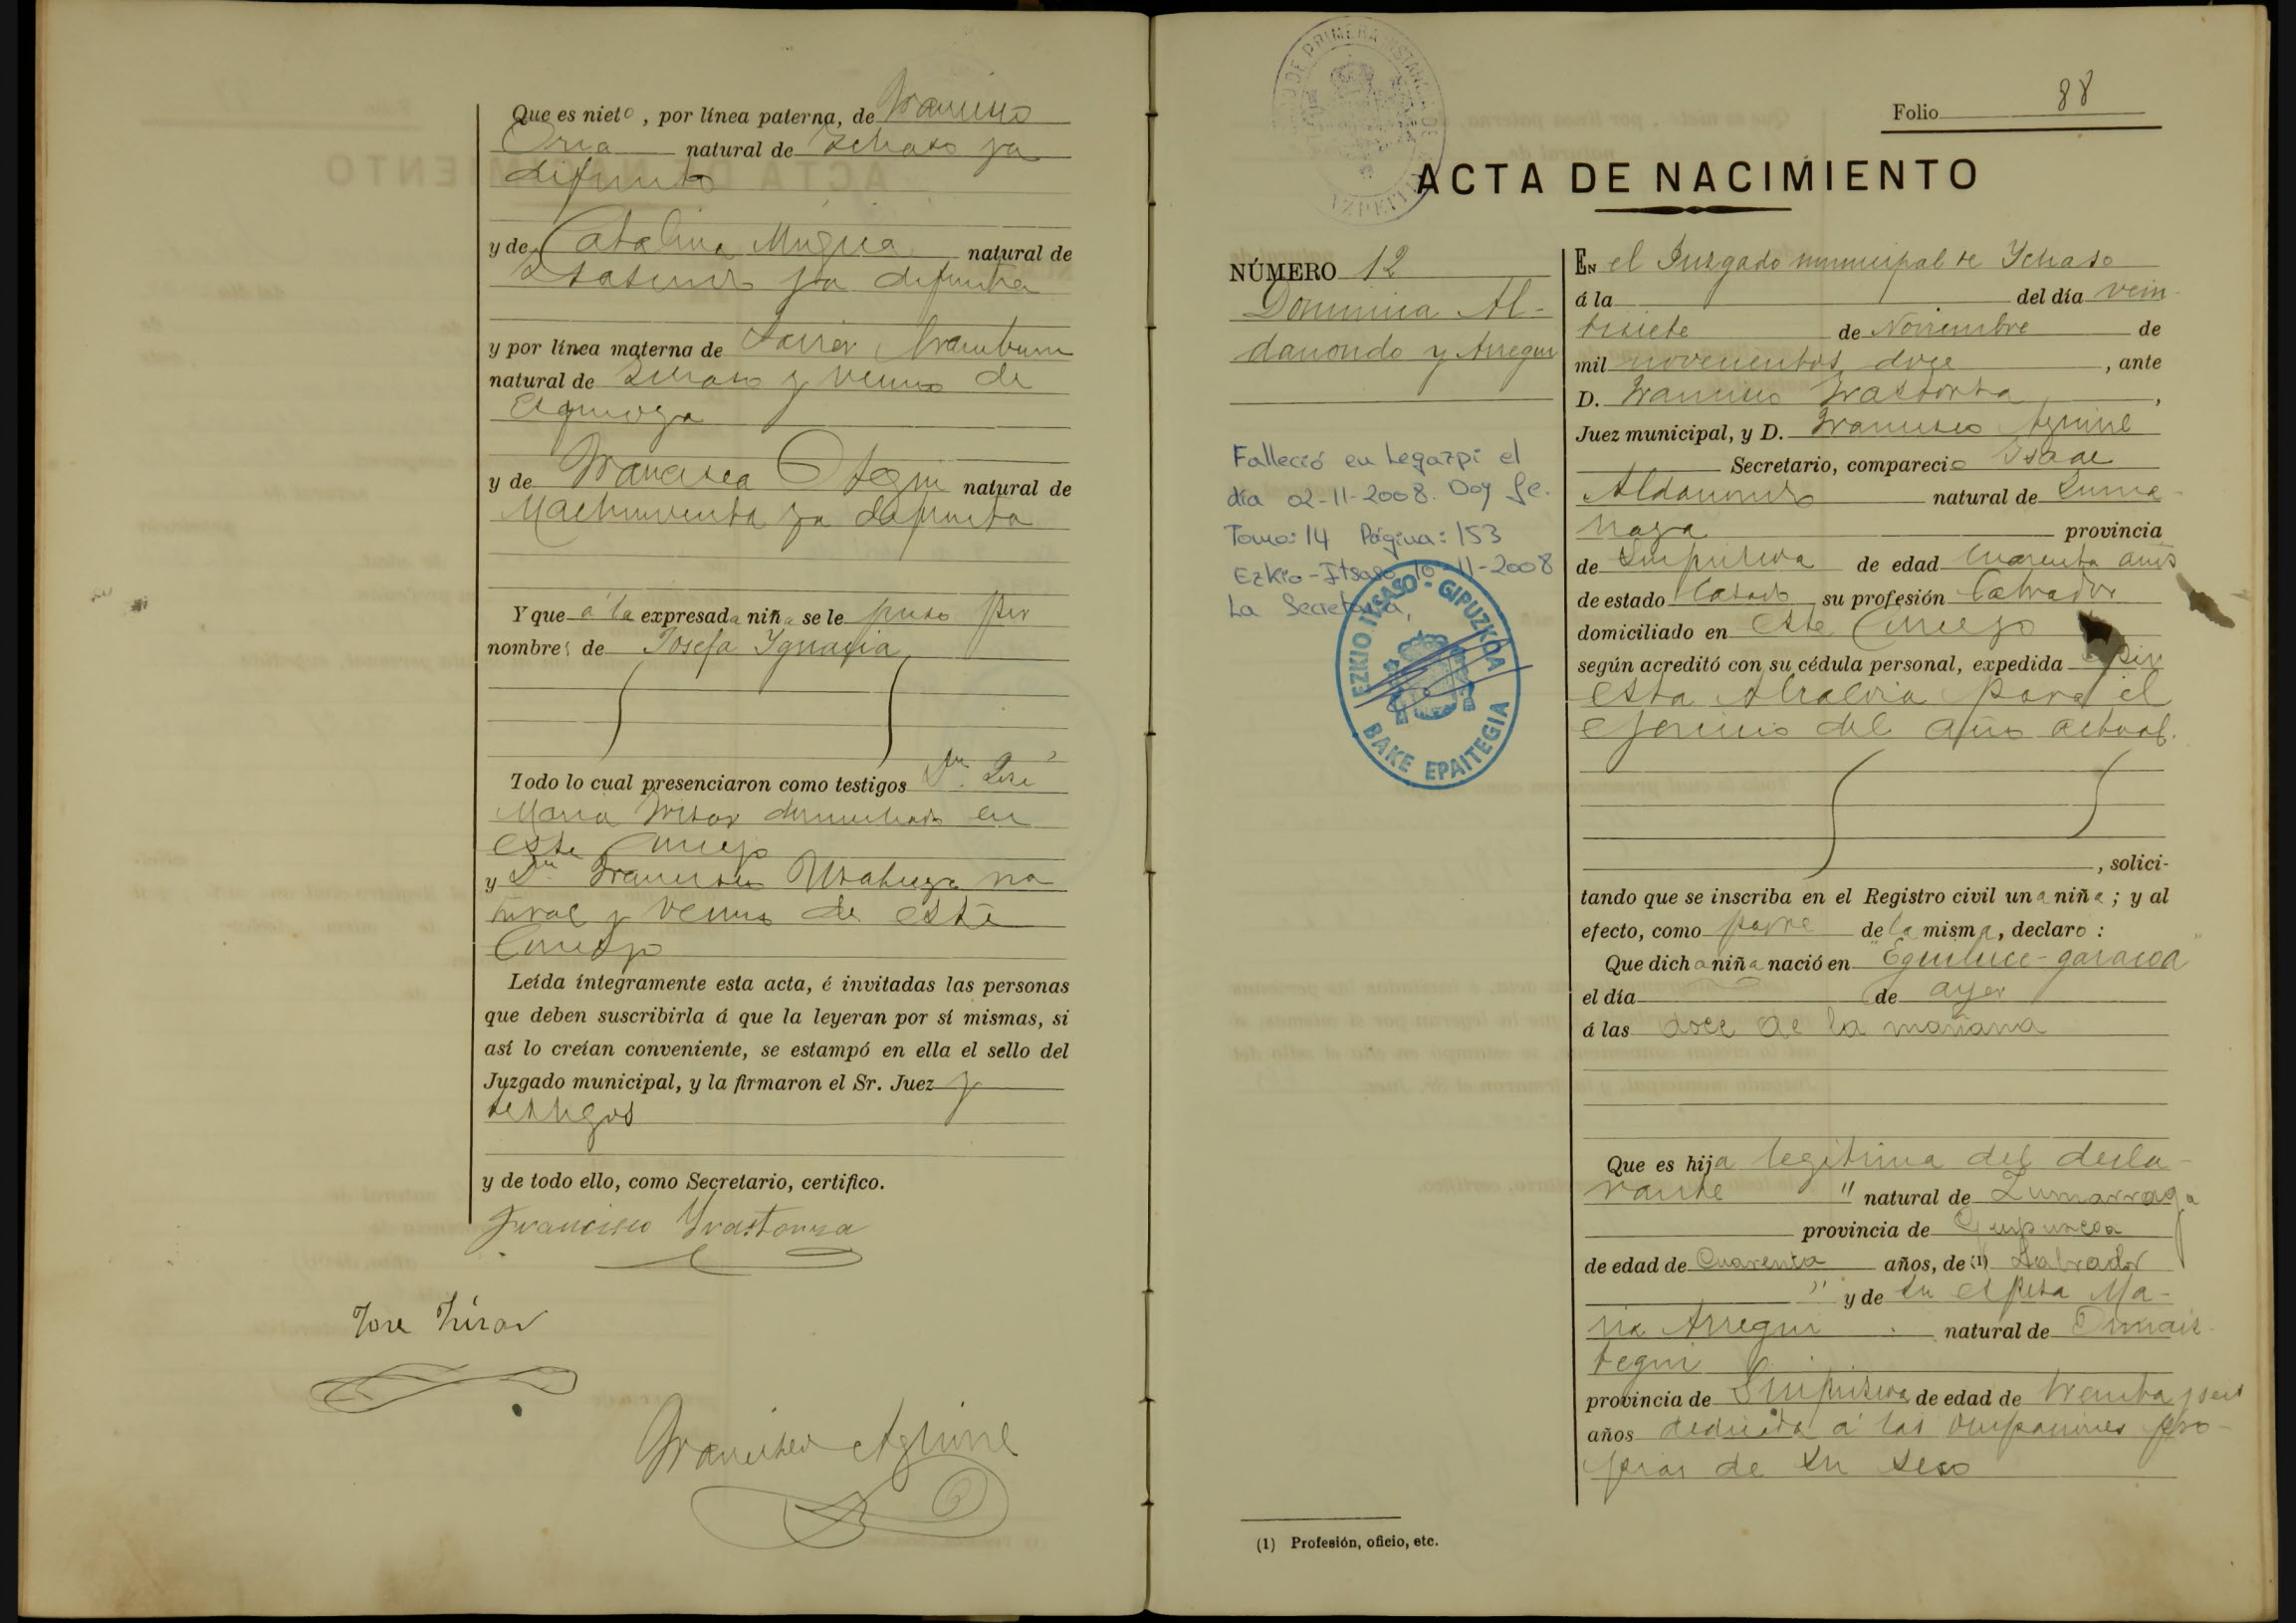 Que es nieto, por línea paterna, de Francisco
Oria natural de Ichaso ya
difunto
y de Catalina Mugica natural de
Ataun ya difunta
y por línea materna de Javier Aramburu
natural de Ichaso y vecino de
Ezquioga
y de Francisca Otegui natural de
Machinventa ya difunta
Y que á la expresada niña se le puso por
nombres de Josefa Ygnacia
Todo lo cual presenciaron como testigos Dn. José
Maria domiciliado en
este Concejo
y Dn. Francisco na
tural y vecino de este
Concejo
Leída íntegramente esta acta, é invitadas las personas
que deben suscribirla á que la leyeran por sí mismas, si
así lo creían conveniente, se estampó en ella el sello del
Juzgado municipal, y la firmaron el Sr. Juez y
testigos
y de todo ello, como Secretario, certifico.
Francisco Yrastorza
Jose
Francisco Aguirre
Folio 88
ACTA DE NACIMIENTO
NÚMERO 12
Dominica Al-
danondo y Arregui
Falleció en Legazpi el
día 02-11-2008. Doy fe.
Tomo: 14 Página: 153
Ezkio-Itsaso 10-11-2008
La Secretaria,
EZKIO ITSASO - GIPUZKOA
BAKE EPAITEGIA
EN el Juzgado municipal de Ychaso
á la del día vein-
tisiete de Noviembre de
mil novecientos doce, ante
D. Francisco Yrastorza,
Juez municipal, y D. Francisco Aguirre
Secretario, compareció Isaac
Aldanondo natural de Zuma-
rraga provincia
de Guipuzcoa de edad cuarenta años
de estado casado su profesión labrador
domiciliado en este Concejo
según acreditó con su cédula personal, expedida por
esta Alcaldia para el
ejercicio del año actual.
, solici-
tando que se inscriba en el Registro civil una niña; y al
efecto, como padre de la misma, declaro:
Que dicha niña nació en "Eguiluce-garacoa"
el día de ayer
á las doce de la mañana
Que es hija legitima del decla-
rante " natural de Zumarraga
provincia de Guipuzcoa
de edad de Cuarenta años, de (1) Labrador
" y de su esposa Ma-
ria Arregui natural de Ormaiz-
tegui
provincia de Guipuzcoa de edad de treinta y seis
años dedicada á las ocupaciones pro-
pias de su sexo
(1) Profesión, oficio, etc.